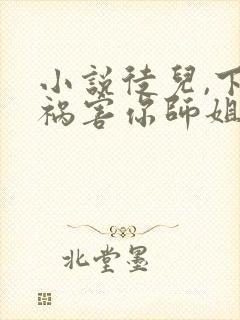 小說徒兒,下
禍害你師姐
北堂墨